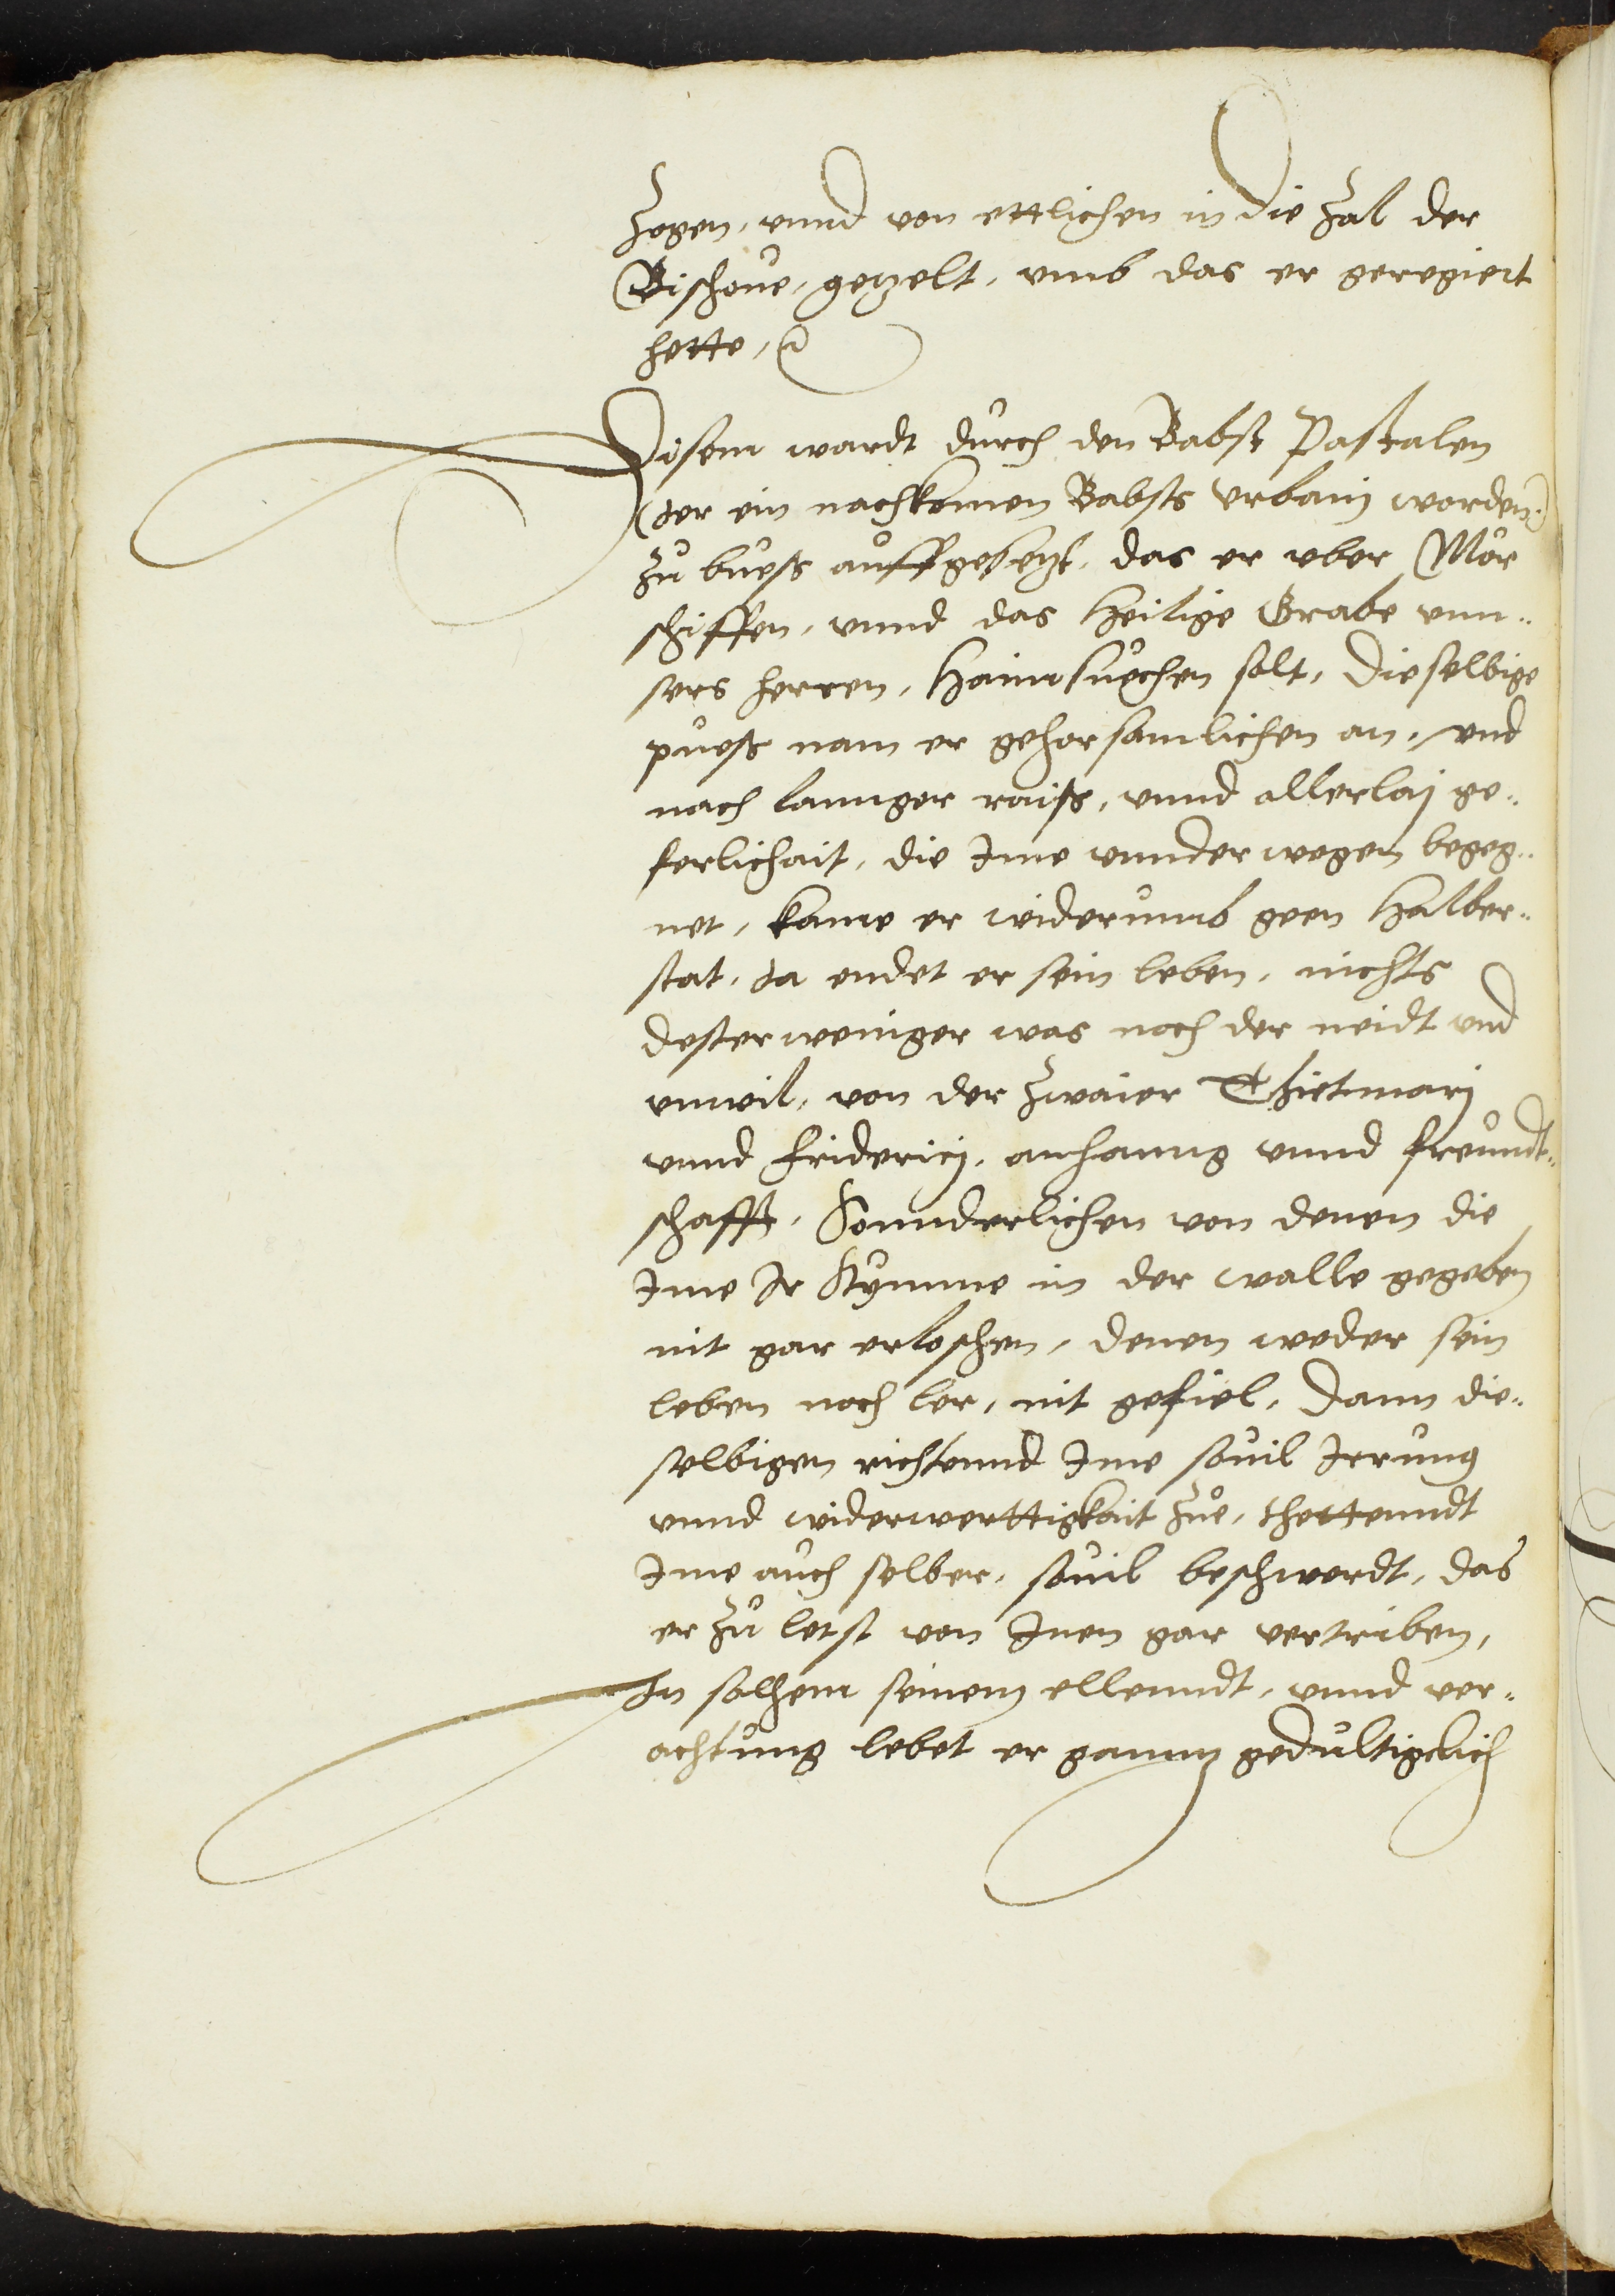 zogen, vnnd von ettlichen in die zal der
Bischoue, gezelt, vmb das er geregiert
hette,
Disem wardt durch den Babst Paschalen
(der ein nachkomen Babsts Vrbani worden)
zu buess auffgesetzt, das er vber Mör
schiffen, vnnd das Heilige Grabe vnn¬
sers herren, haimsuechen solt, dieselbige
puess nam er gehorsamlichen an, vnd
nach lannger raiss, vnnd allerlaj ge¬
ferlichait, die Ime vnnderwegen begeg¬
net, kame er widerumb geen Halber¬
stat, da endet er sein leben, nichts
dester weniger was noch der neidt vnd
vnwil, von der zwaier Thietmarj
vnnd Friderici, anhanng vnnd freundt¬
schafft, Sonnderlichen von denen die
Ime Ir Stymme in der walle gegeben
nit gar erloschen, denen weder sein
leben noch ler, nit gefiel, dann die¬
selbigen richtennd Ime souil Irrung
vnnd widerwerttigkait zue, thettenndt
Ime auch selber, souil beschwerdt, das
er zu letst von Inen gar vertriben,
In solhem seinem ellenndt, vnnd ver¬
achtung lebet er gannz gedultigclich